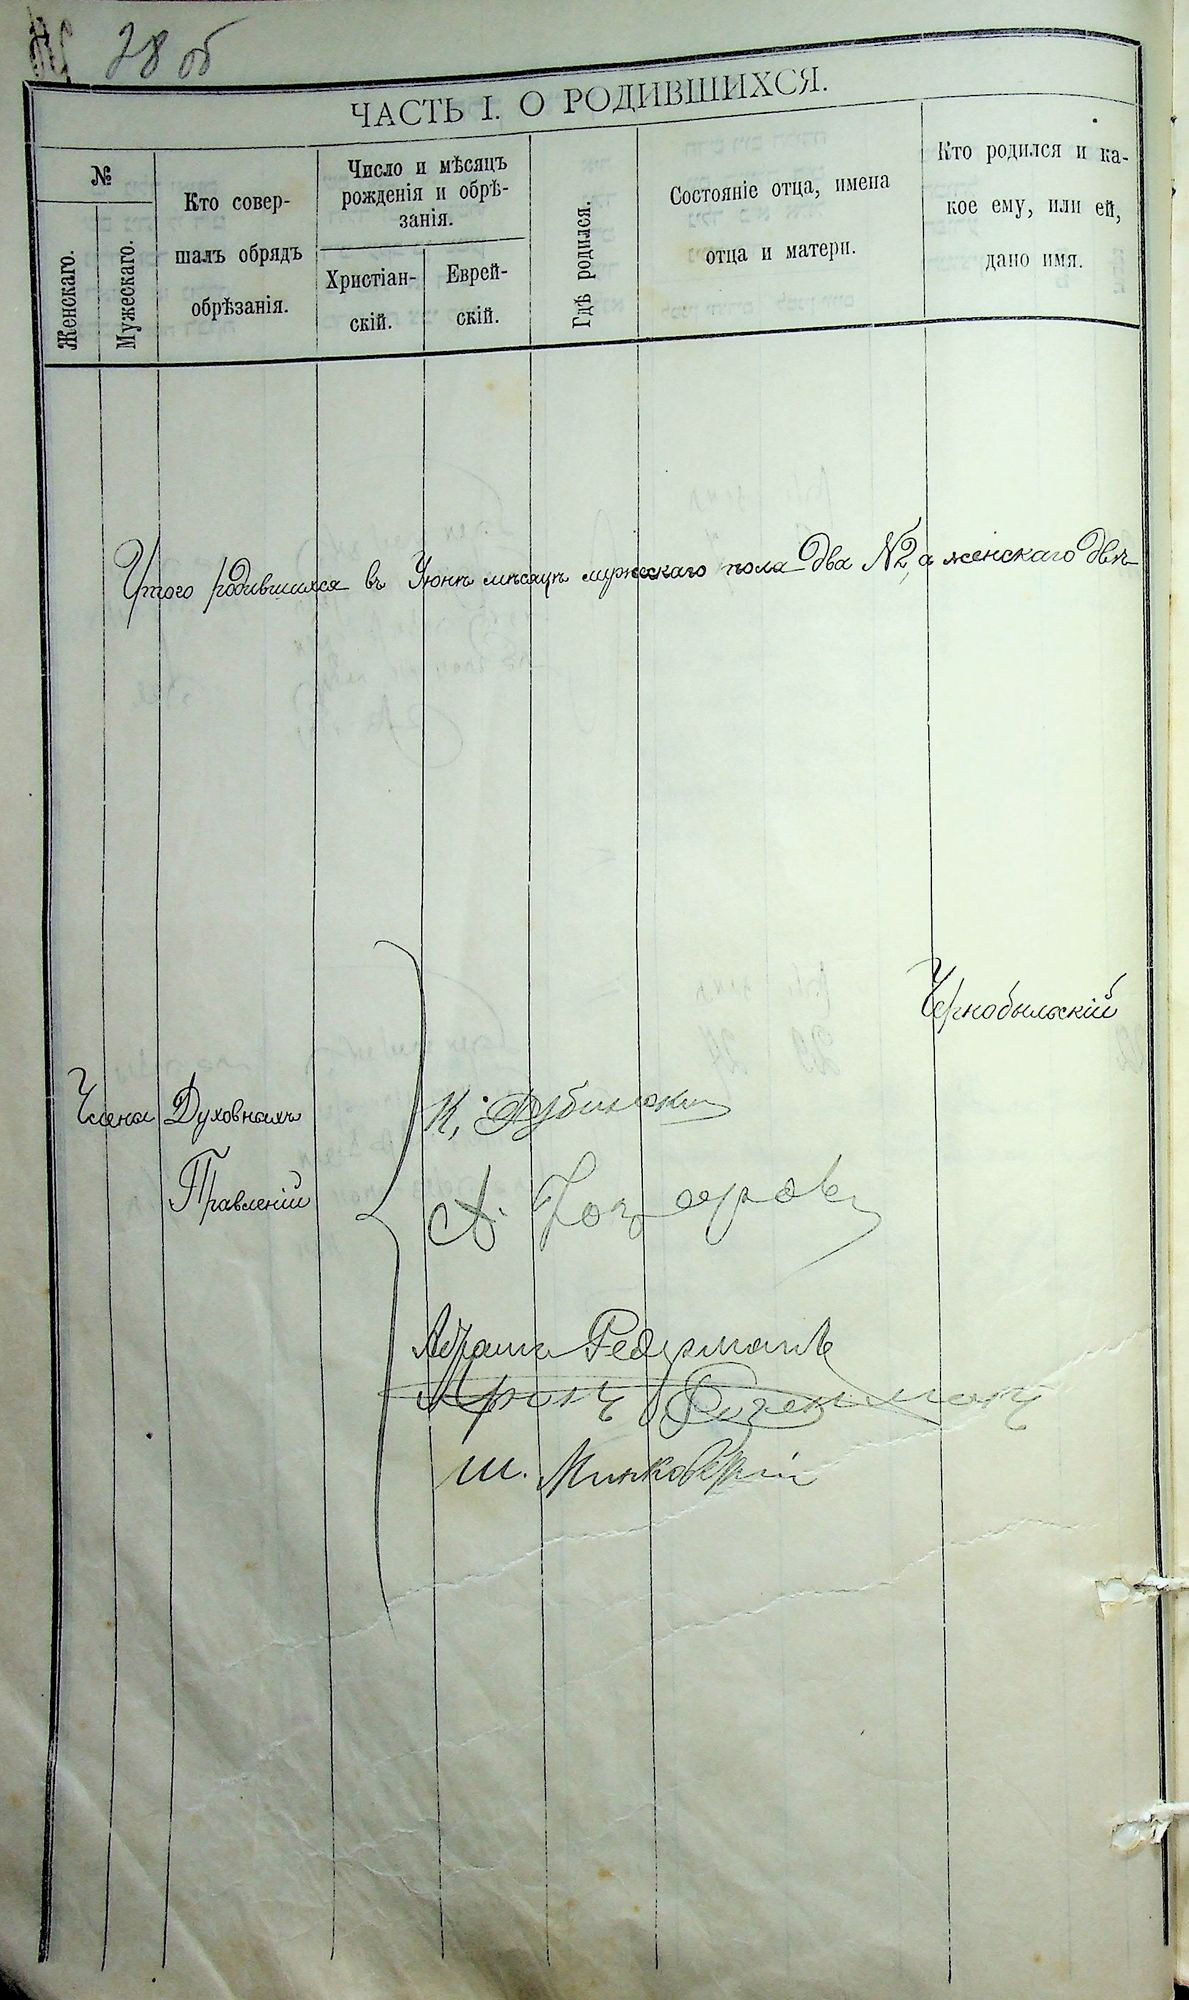 28 об
ЧАСТЬ I. О РОДИВШИХСЯ.
№
Женскаго.
Мужескаго.
Кто совер-
шалъ обрядъ
обрѣзанія.
Число и мѣсяцъ
рожденія и обрѣ-
занія.
Христіан-
скій.
Еврей-
скій.
Гдѣ родился.
Состояніе отца, имена
отца и матери.
Кто родился и ка-
кое ему, или ей,
дано имя.
Итого родившихся въ Июнѣ мѣсяцѣ мужескаго пола два №2, а женскаго двѣ
Чернобыльскій
Члена Духовнахъ
Правленій
К.
А.
Абрамъ
Аронъ
Ш. Минковскій